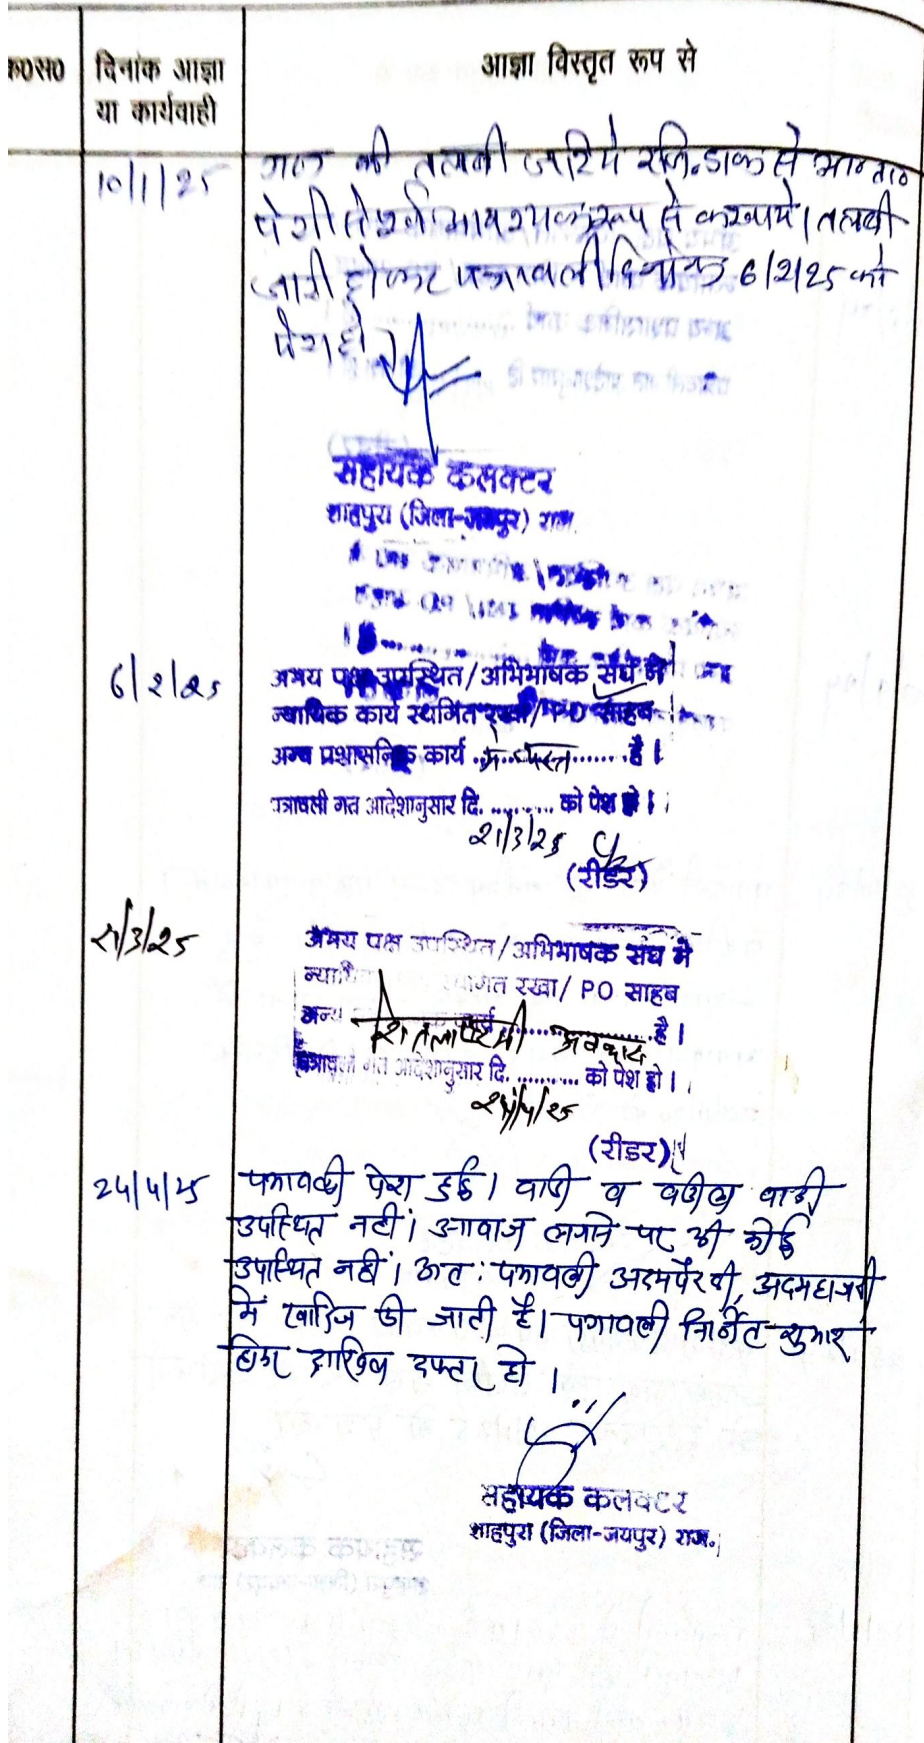 क०स० दिनांक आज्ञा आज्ञा विस्तृत रूप से
या कार्यवाही
10/1/25 की तलबी जरिये रजि. डाक से
पेशी से आवश्यक रूप से करवाये। तलबी
जारी होकर पत्रावली दिनांक 6/2/25 को
पेश हो
सहायक कलक्टर
शाहपुरा (जिला-जयपुर) राज.
6/2/25 उभय पक्ष उपस्थित/अभिभाषक संघ ने
न्यायिक कार्य स्थगित रखा/PO साहब
अन्य प्रशासनिक कार्य में व्यस्त है।
पत्रावली गत आदेशानुसार दि. .......... को पेश हो।
21/3/25
(रीडर)
21/3/25 उभय पक्ष उपस्थित/अभिभाषक संघ ने
न्यायिक स्थगित रखा/ PO साहब
अन्य कार्य .................... है।
शितलाष्टमी अवकाश
पत्रावली गत आदेशानुसार दि. .......... को पेश हो।
24/4/25
(रीडर)
24/4/25 पत्रावली पेश हुई। वादी व वकील वादी
उपस्थित नहीं। आवाज लगाने पर भी कोई
उपस्थित नहीं। अतः पत्रावली अदमपैरवी, अदमहाजरी
में खारिज की जाती है। पत्रावली निर्णित शुमार
होकर दाखिल दफ्तर हो।
सहायक कलक्टर
शाहपुरा (जिला-जयपुर) राज.